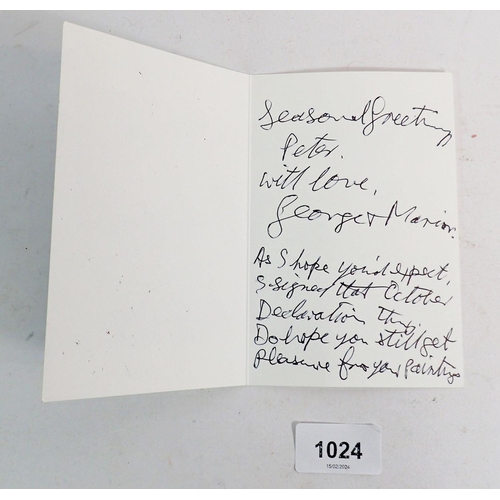 Seasonal Greetings
Peter.
with love,
George + Marion.
As I hope you'd expect,
I signed that October
Declaration
Do hope you still get
pleasure from your paintings
1024
15/02/2024